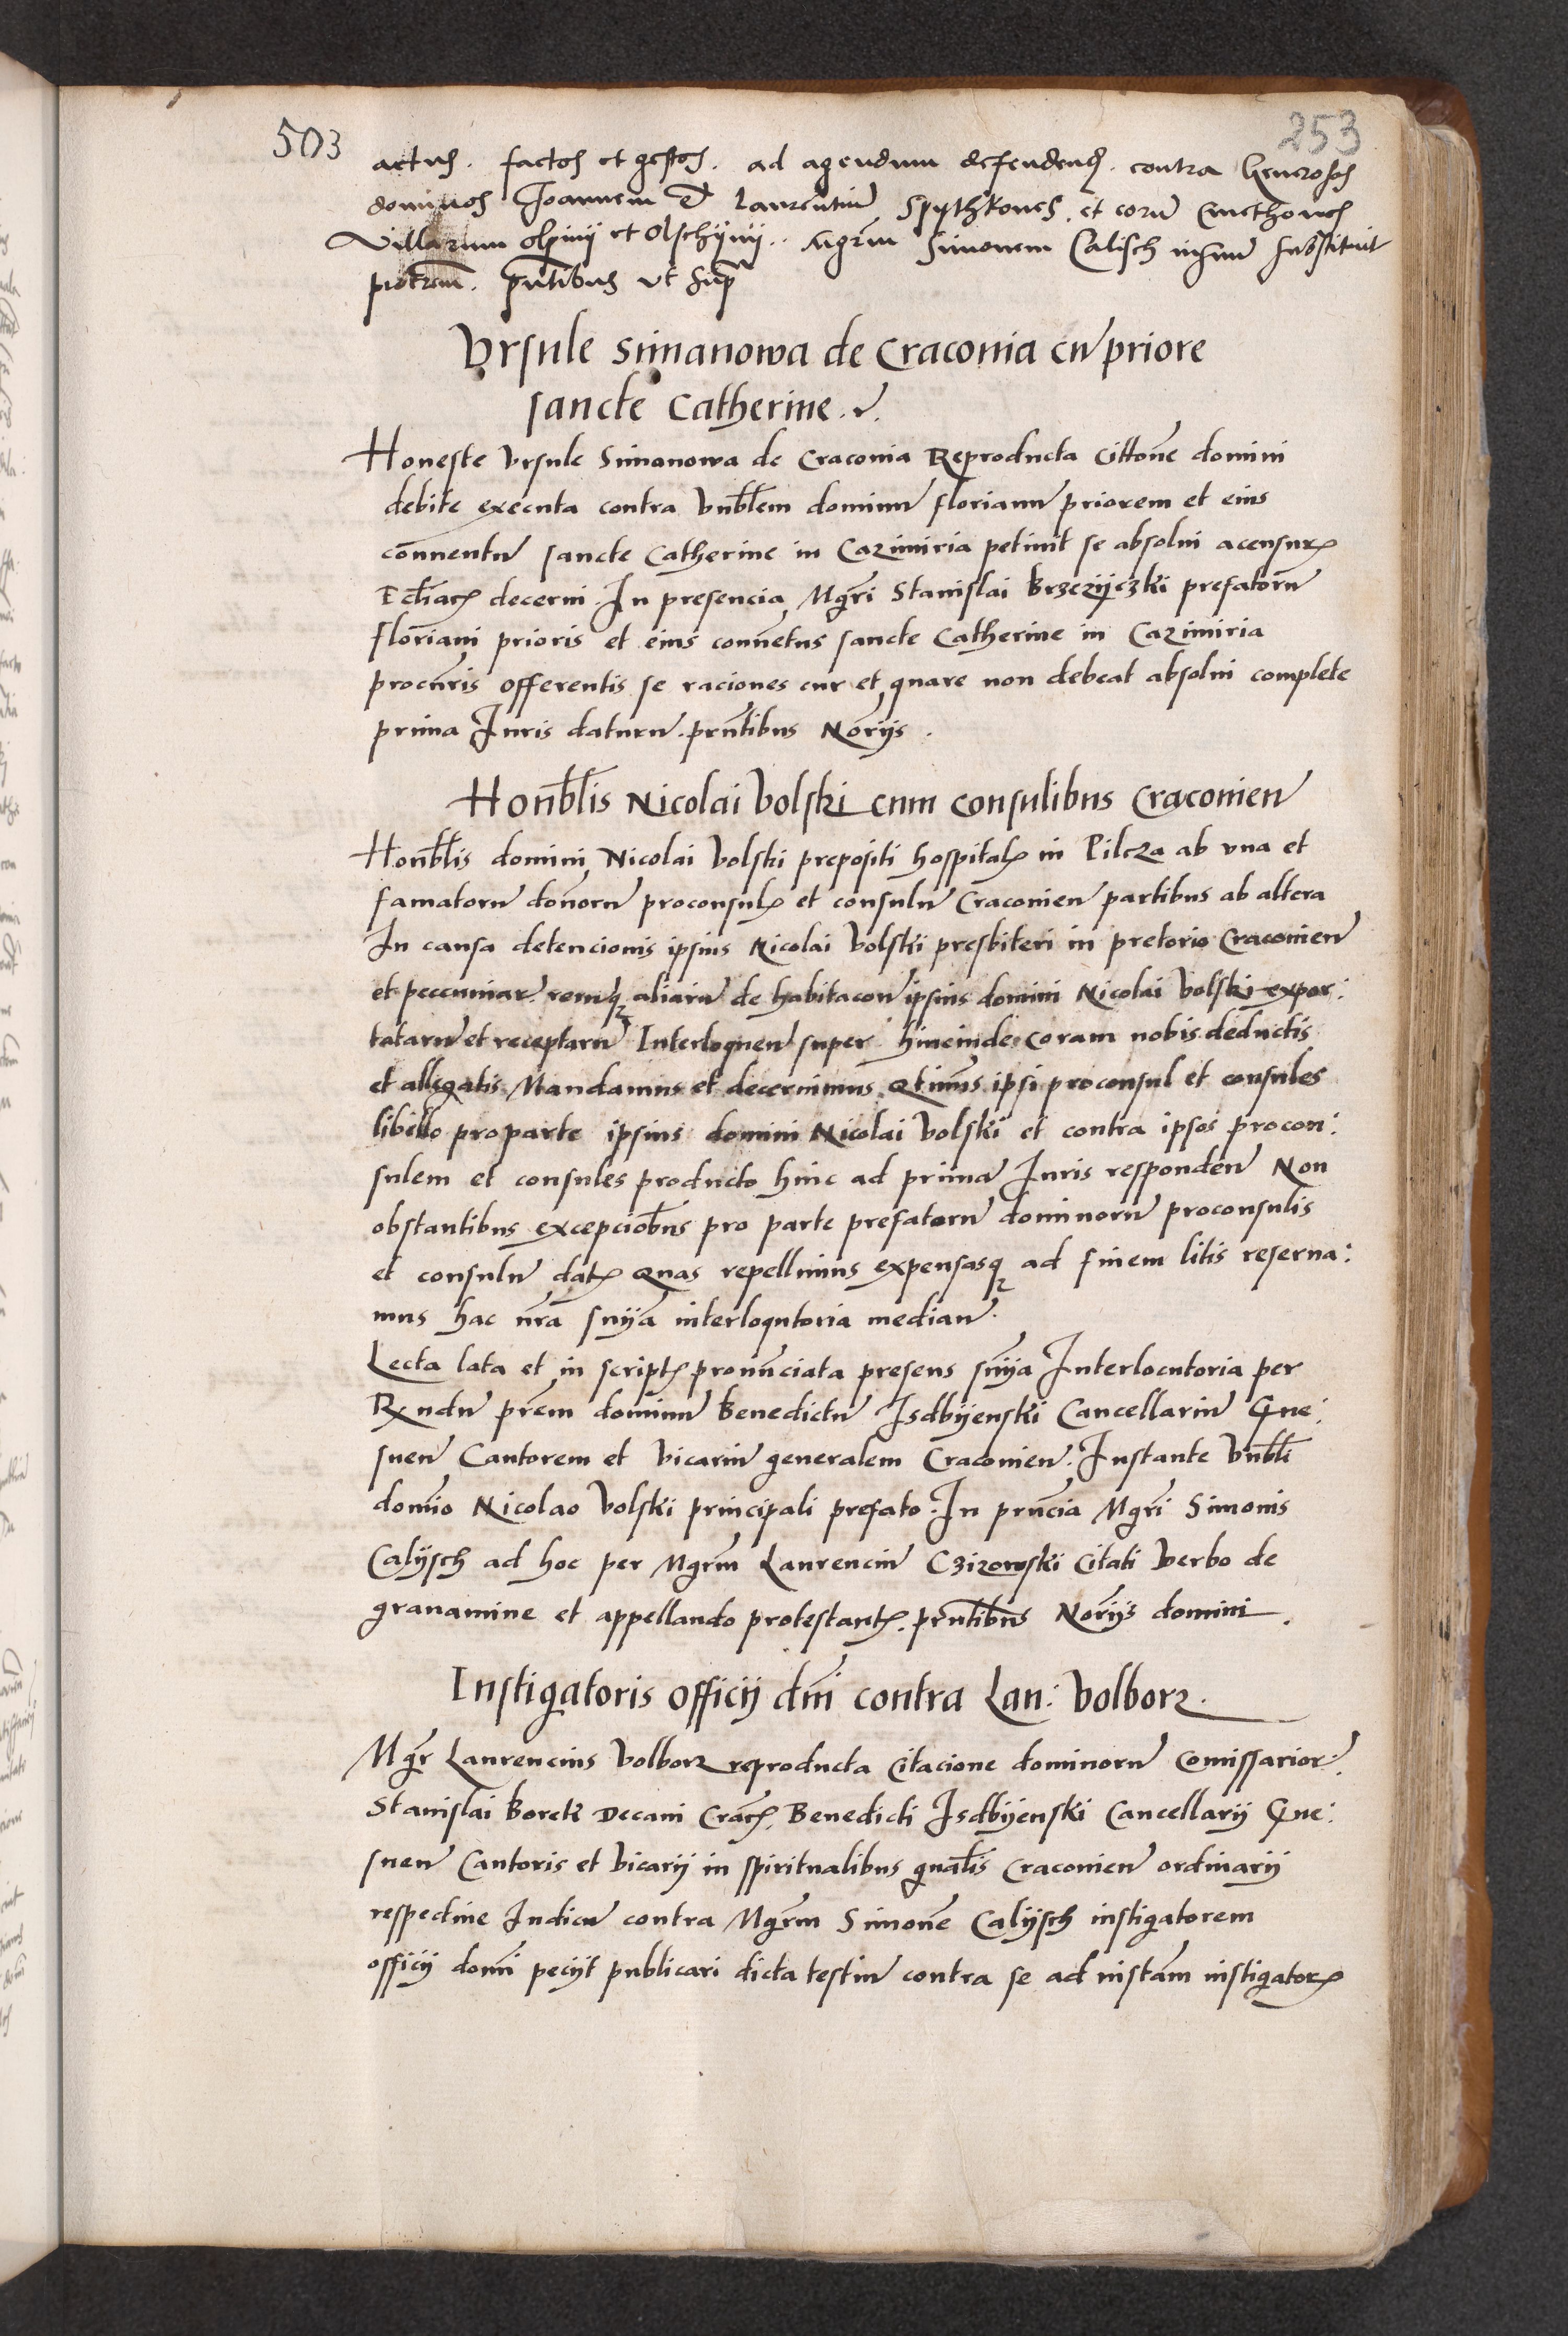 503
253
actus . factos et gestos . ad agendum defendend . contra Generosos
dominos Joannem et Laurentiu Spythkones . et eoru Cmethones
Villarum Olpinij et Olschijnij .. Mgrm Simonem Calisch substituit
procrem . pntibus ut sup
Vrsule Simanowa de Craconia cu priore
sancte Catherine .
Honeste Vrsule Simanowa de Craconia Reproducta Cittone domini
debite executa contra Vnblem dominu florianu priorem et eius
conuentu sancte Catherine in Cazimiria petiuit se absolui a censur
Ecliac decerni . In presencia Mgri Stanislai Brzezijczki prefatoru
floriani prioris et eius conuetus sancte Catherine in Cazimiria
procuris offerentis se raciones cur et quare non debeat absolui complete
prima Juris daturu . prntibus Norijs .
Honblis Nicolai Volski cum consulibus Craconien
Honblis domini Nicolai Volski prepositi hospital in Pilcza ab vna et
famatoru donoru proconsul et consulu Craconien partibus ab altera
In causa detencionis ipsius Nicolai Volski presbiteri in pretorio Craconien
et peccuniar . remq aliaru de habitacon ipsius domini Nicolai Volski expor :
tataru et receptaru Interloquen super hincinde coram nobis deductis
et allegatis Mandamus et decernimus qtinus ipsi proconsul et consules
libello pro parte ipsius domini Nicolai Volski et contra ipsos procon :
sulem et consules producto hinc ad prima Juris responden Non
obstantibus excepciobus pro parte prefatoru dominoru proconsulis
et consulu dat quas repellimus expensasq ad finem litis reserua :
mus hac nra snija interloqutoria median .
Lecta lata et in script pronunciata presens snija Interlocutoria per
Rxndu prem dominu Benedictu Isdbijenski Cancellariu Gne :
snen Cantorem et Vicariu generalem Craconien . Instante Vnbli
domio Nicolao Volski principali prefato . In prncia Mgri Simonis
Calijsch ad hoc per Mgrm Laurenciu Czizowski Citati verbo de
grauamine et appellando protestant . prntibus Norijs domini .
Instigatoris officij dni contra Lau : Volborz .
Mgr Laurencius Volborz reproducta Citacione dominoru Comissarior .
Stanislai Borek Decani Crac . Benedicti Isdbijenski Cancellarij Gne :
snen Cantoris et Vicarij in spiritualibus gnalis Craconien ordinarij
respectiue Iudicu contra Mgrm Simone Calijsch instigatorem
officij domi pecijt publicari dicta testiu contra se ad instam instigator